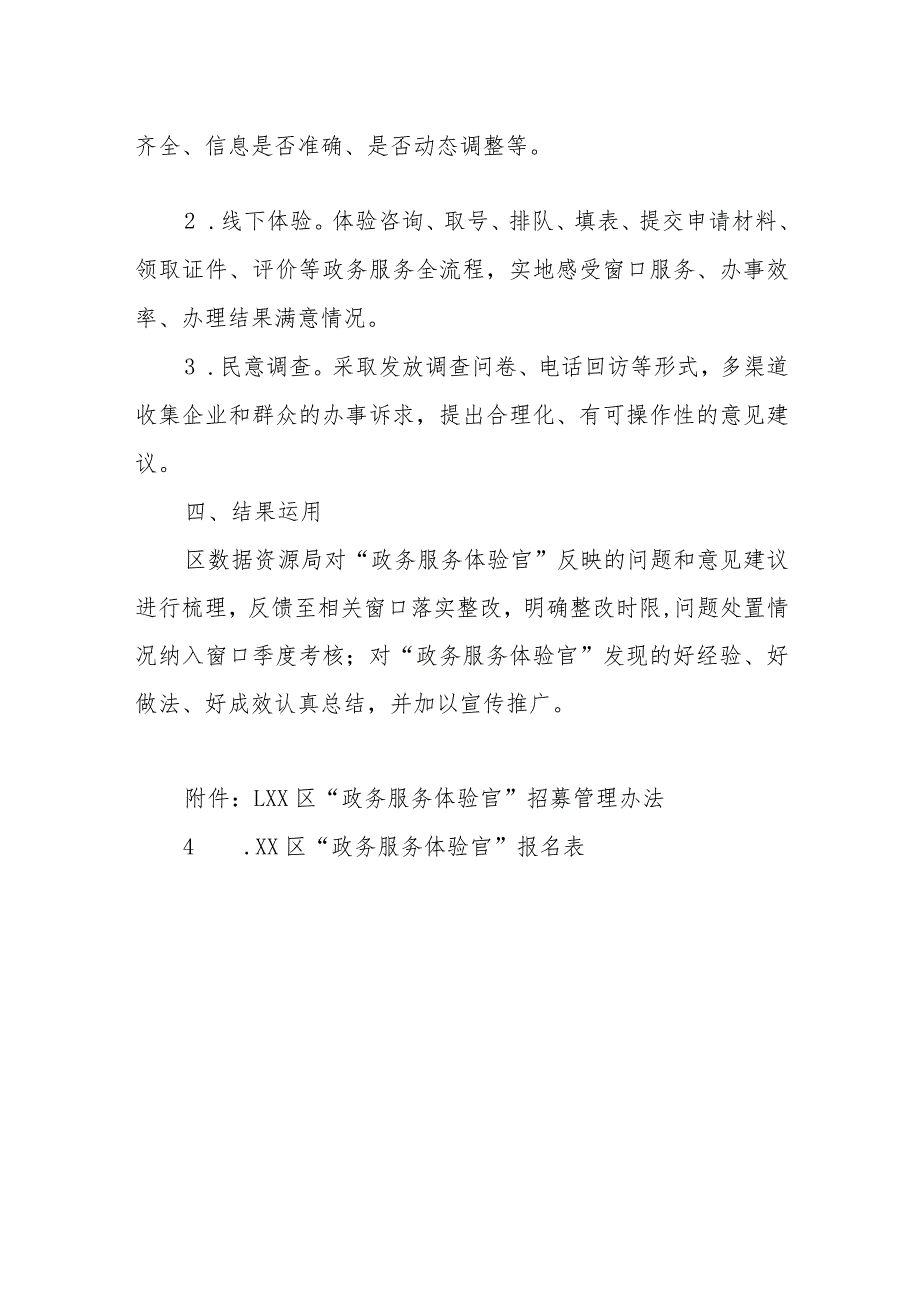 齐全、信息是否准确、是否动态调整等。
2 .线下体验。体验咨询、取号、排队、填表、提交申请材料、
领取证件、评价等政务服务全流程，实地感受窗口服务、办事效
率、办理结果满意情况。
3 .民意调查。采取发放调查问卷、电话回访等形式，多渠道
收集企业和群众的办事诉求，提出合理化、有可操作性的意见建
议。
四、结果运用
区数据资源局对“政务服务体验官”反映的问题和意见建议
进行梳理，反馈至相关窗口落实整改，明确整改时限,问题处置情
况纳入窗口季度考核；对“政务服务体验官”发现的好经验、好
做法、好成效认真总结，并加以宣传推广。
附件：LXX 区“政务服务体验官”招募管理办法
4 .XX 区“政务服务体验官”报名表